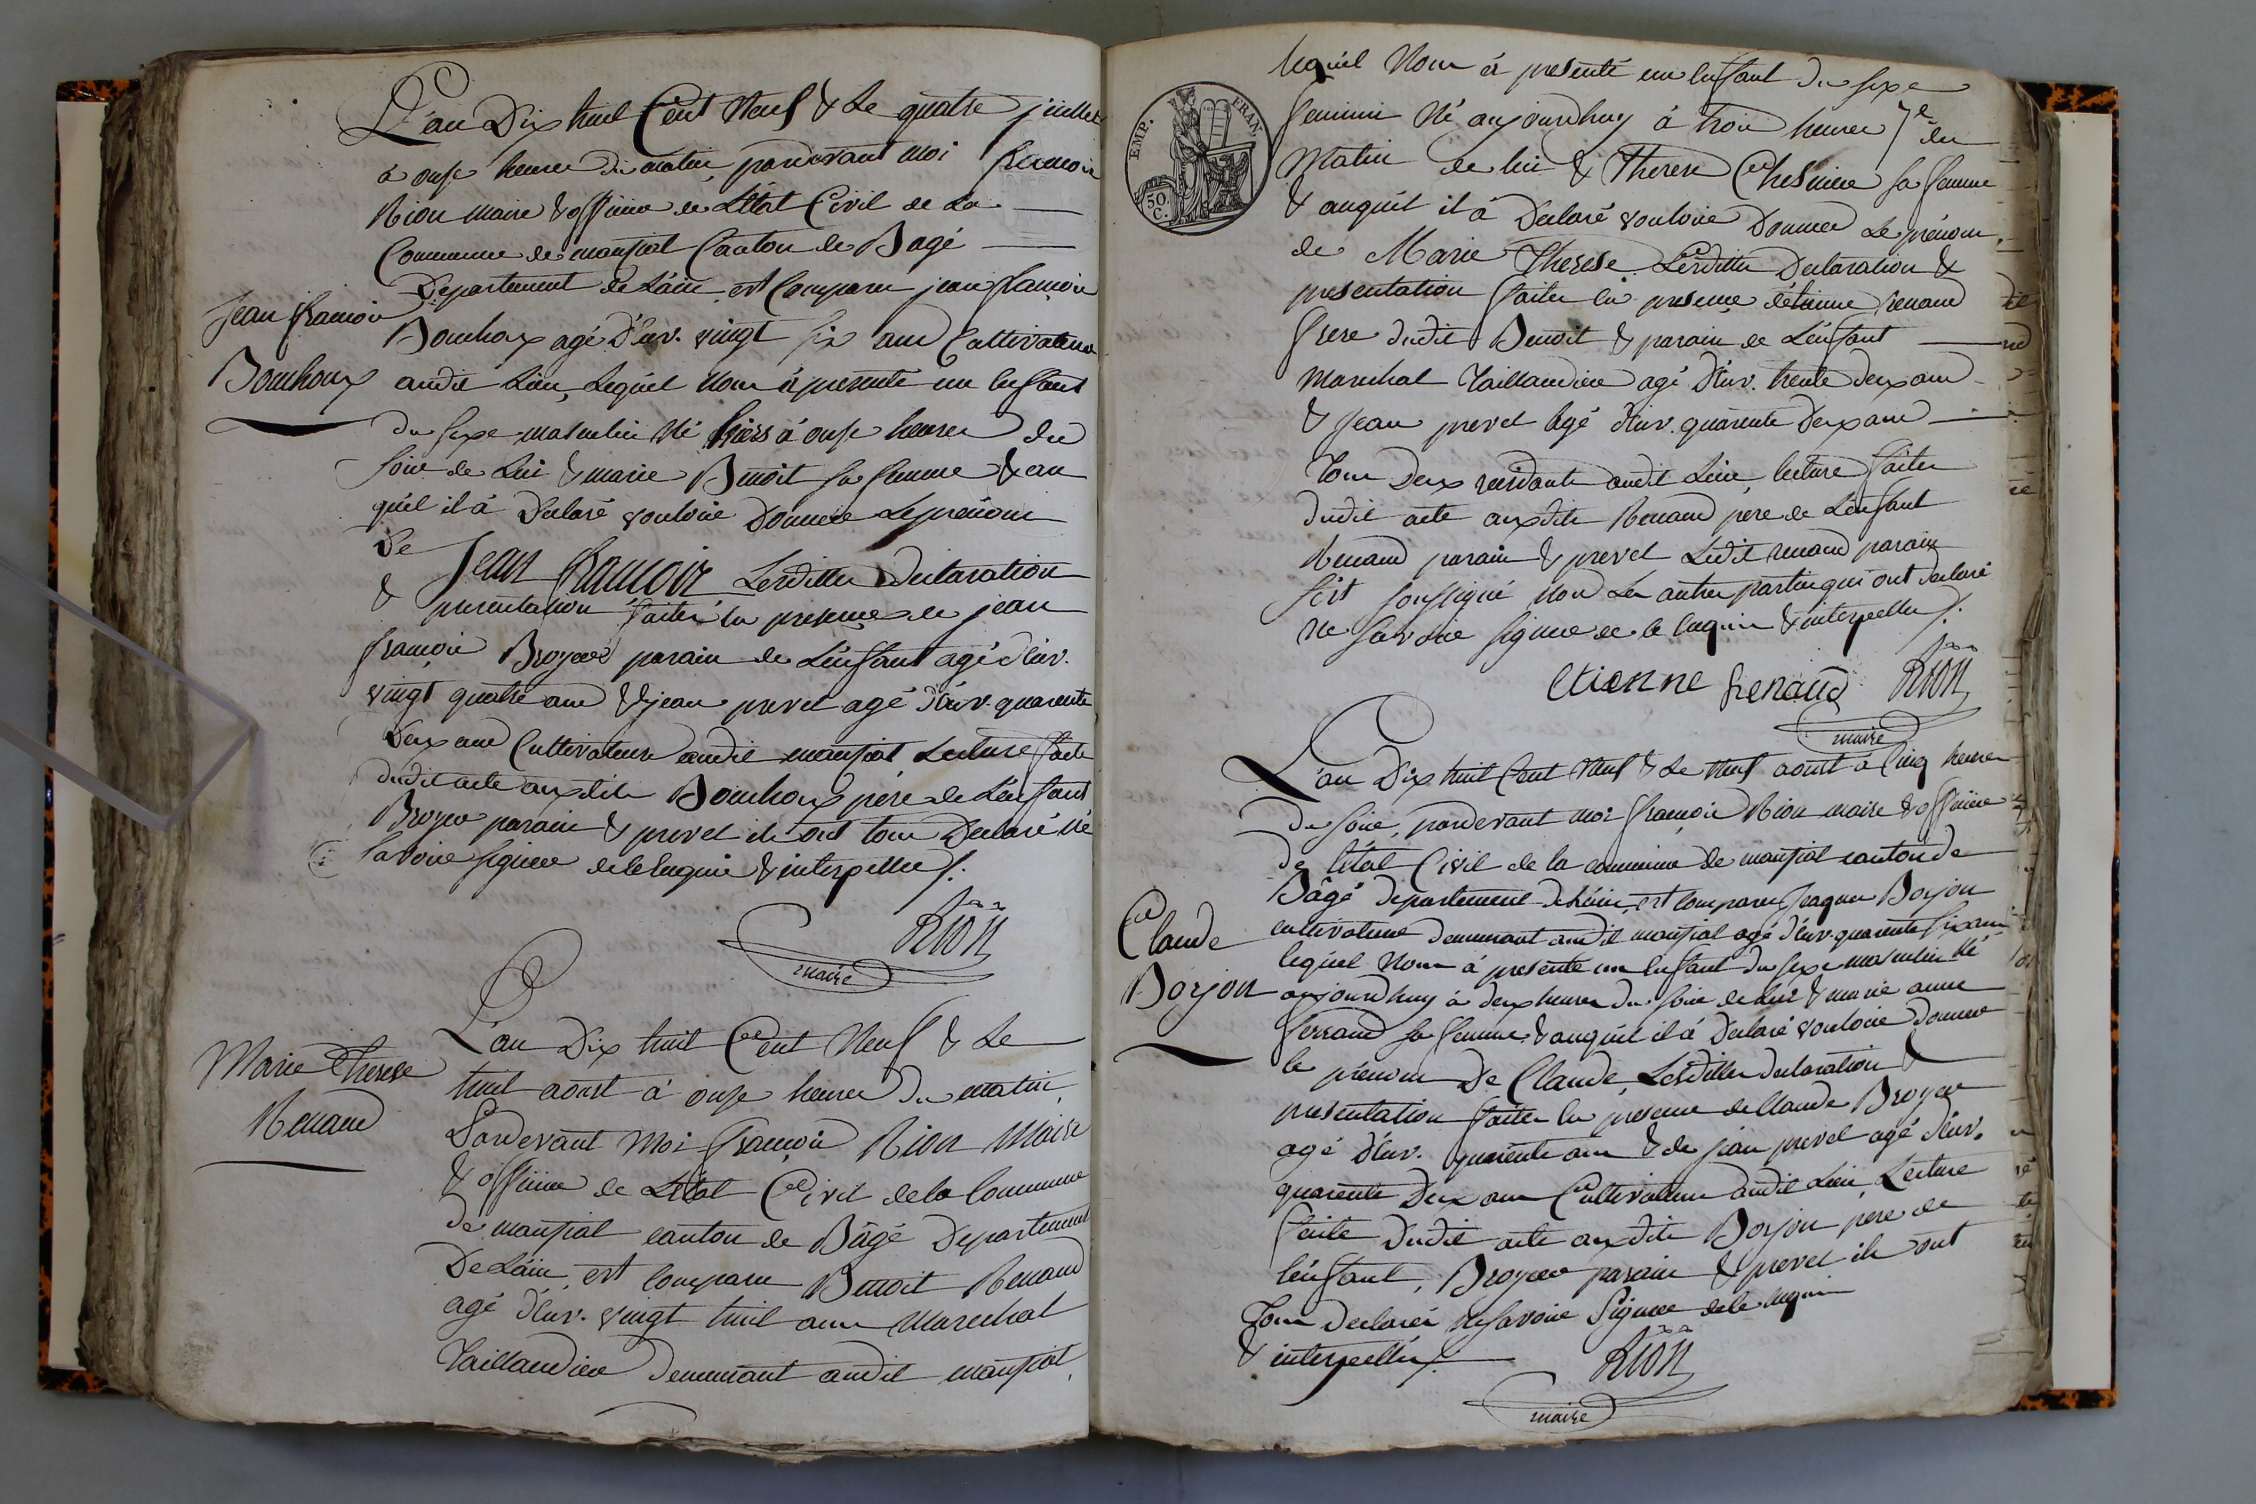 L'an Dix huit Cent Neuf & Le quatre juillet
à onze heures du matin, pardevant moi francois
Rion maire & officier de L'état Civil de La
Commune de mansiat Canton de Bagé
Departement de L'ain, est Comparu jean françois
Jean francois
Bouchoux
Bouchoux agé d'Env. vingt six ans Cultivateur
audit Lieu, Lequel Nous à presenté un Enfant
du sexe masculin Né hiers à onze heures du
soir de Lui & marie Benoit sa femme & au
quel il à Declaré vouloir Donner Le prénom
De Jean francois Lesdittes Declaration
& presentation faites en presence de jean
françois Broyer parain de L'enfant agé d'Env.
vingt quatre ans & jean prevel agé d'Env. quarente
Deux ans Cultivateurs audit mansiat Lecture faite
dudit acte auxdits Bouchoux père de L'enfant
Broyer parain & prevel ils ont tous Declaré Ne
savoir signer de ce Enquis & interpellés /.
Rion
maire
Marie Therese
Renaud
L'an Dix huit Cent Neuf & Le
huit aoust à onze heures du matin,
Pardevant Moi françois Rion Maire
& officier de L'état Civil de la Commune
de mansiat canton de Bâgé Departement
De L'ain, est Comparu Benoit Renaud
agé d'Env. vingt huit ans Marechal
Taillandier demeurant audit mansiat,
EMP. FRAN.
50 C.
lequel Nous à presenté un Enfant du sexe
feminin Né aujourdhuy à trois heures du
matin de lui & Therese Chesnier sa femme
& auquel il à Declaré vouloir Donner Le prénom
de Marie Therese Lesdittes Declaration &
presentation faites en presence d'étienne Renaud
frere dudit Benoit & parain de L'enfant
Marechal Taillandier agé d'Env. trente deux ans
& Jean prevel Agé d'Env. quarente Deux ans
Tous Deux residants audit Lieu, lecture faites
dudit acte auxdits Renaud pere de L'enfant
Renaud parain & prevel Ledit renaud parain
s'est soussigné Non Les autres parties qui ont declaré
Ne savoir signer de ce Enquis & interpellés /.
etienne Renaud Rion
maire
L'an Dix huit Cent Neuf & Le Neuf aoust à Cinq heures
Du soir, pardevant moi françois Rion maire & officier
De l'état Civil de la commune de mansiat canton de
Bâgé departement de L'ain, est comparu Jaques Borjon
Claude
Borjon
cultivateur demeurant audit mansiat agé d'Env. quarente six ans
lequel Nous à presenté un Enfant du sexe masculin Né
aujourdhuy à deux heures du soir de lui & marie anne
ferrand sa femme & auquel il à Declaré vouloir donner
le prénom De Claude, Lesdittes declaration &
presentation faites en presence de Claude Broyer
agé d'Env. quarente ans & de jean prevel agé d'Env.
quarente Deux ans Cultivateurs audit Lieu, Lecture
faite Dudit acte auxdits Borjon pere de
l'enfant, Broyer parain & prevel ils ont
Tous Declarés Ne savoir Signer de ce Enquis
& interpellés /.
Rion
maire